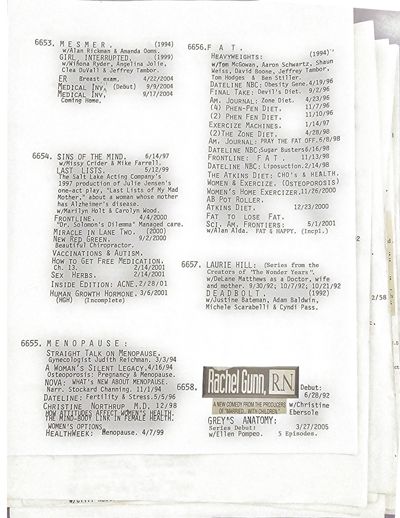 6653. MESMER. (1994)
w/Alan Rickman & Amanda Ooms.
GIRL INTERRUPTED. (1999)
w/Winona Ryder, Angelina Jolie,
Clea DuVall & Jeffrey Tambor.
ER Breast exam. 4/22/2004
MEDICAL INV. (Debut) 9/9/2004
MEDICAL INV. 9/17/2004
Coming Home.
6654. SINS OF THE MIND. 6/14/97
w/Missy Crider & Mike Farrell.
LAST LISTS. 5/12/99
The Salt Lake Acting Company's
1997 production of Julie Jensen's
one-act play, "Last Lists of My Mad
Mother," about a woman whose mother
has Alzheimer's disease.
w/Marilyn Holt & Carolyn Wood.
FRONTLINE. 4/4/2000
"Dr. Solomon's Dilemma" Managed care.
MIRACLE IN LANE TWO. (2000)
NEW RED GREEN. 9/2/2000
Beautiful Chiropractor.
VACCINATIONS & AUTISM.
HOW TO GET FREE MEDICATION.
CH. 13. 2/14/2001
SEX HERBS. 2/14/2001
INSIDE EDITION: ACNE. 2/28/01
HUMAN GROWTH HORMONE. 3/6/2001
(HGH) (Incomplete)
6655. MENOPAUSE:
STRAIGHT TALK ON MENOPAUSE.
Gynecologist Judith Reichman. 3/3/94
A WOMAN'S SILENT LEGACY. 4/16/94
Osteoporosis: Pregnancy & Menopause.
NOVA: WHAT'S NEW ABOUT MENOPAUSE.
Narr. Stockard Channing. 11/1/94
DATELINE: Fertility & Stress. 5/5/96
CHRISTINE NORTHRUP M.D. 12/98
HOW ATTITUDES AFFECT WOMEN'S HEALTH.
THE MIND-BODY LINK IN FEMALE HEALTH.
WOMEN'S OPTIONS
HEALTHWEEK: Menopause. 4/7/99
6656. FAT.
HEAVYWEIGHTS: (1994)
w/Tom McGowan, Aaron Schwartz, Shaun
Weiss, David Boone, Jeffrey Tambor,
Tom Hodges & Ben Stiller.
DATELINE NBC: Obesity Gene. 4/19/96
FINAL TAKE: Devil's Diet. 9/2/96
AM. JOURNAL: Zone Diet. 4/23/96
(4) PHEN-FEN DIET. 11/7/96
(2) PHEN FEN DIET. 11/10/96
EXERCIZE MACHINES. 1/14/97
(2)THE ZONE DIET. 4/28/98
AM. JOURNAL: PRAY THE FAT OFF. 5/8/98
DATELINE NBC: Sugar Busters 6/16/98
FRONTLINE: FAT. 11/13/98
DATELINE NBC: Liposuction. 2/14/98
THE ATKINS DIET: CHO'S & HEALTH.
WOMEN & EXERCIZE. (OSTEOPOROSIS)
WOMEN'S HOME EXERCIZER, 11/26/2000
AB POT ROLLER.
ATKINS DIET. 12/23/2000
FAT TO LOSE FAT.
SCI. AM. FRONTIERS: 5/1/2001
w/Alan Alda. FAT & HAPPY. (Incpl.)
6657. LAURIE HILL: (Series from the
Creators of "The Wonder Years".
w/DeLane Matthews as a Doctor, wife
and mother. 9/30/92; 10/7/92; 10/21/92
DEADBOLT. (1992)
w/Justine Bateman, Adam Baldwin,
Michele Scarabelli & Cyndi Pass.
6658. Rachel Gunn, R.N. Debut:
6/28/92
A NEW COMEDY FROM THE PRODUCERS
OF "MARRIED... WITH CHILDREN."
w/Christine
Ebersole
GREY'S ANATOMY:
Series Debut: 3/27/2005
w/Ellen Pompeo. 5 Episodes.
2/58